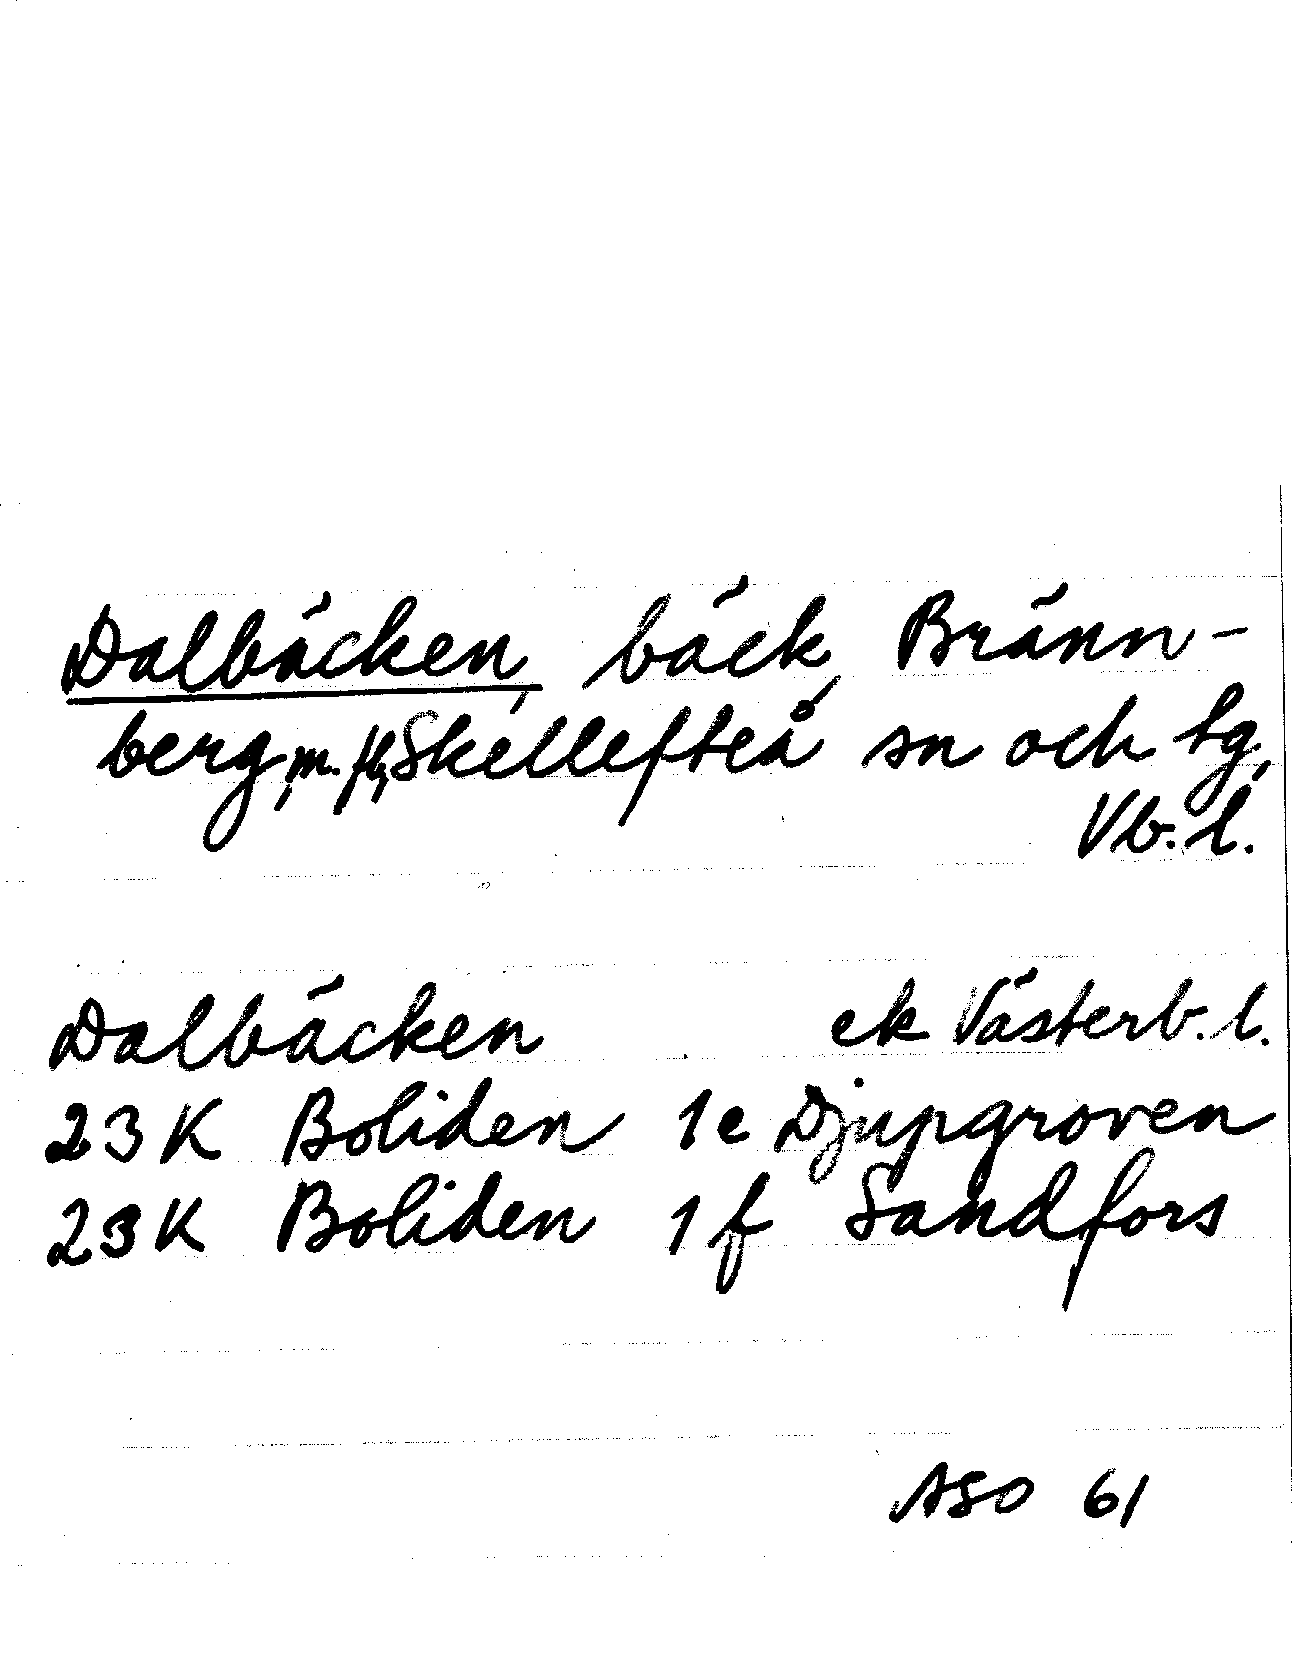 Dalbäcken, bäck, Bränn-
berg, m. fl., Skellefteå sn och tg,
Vb. l.
Dalbäcken ek Västerb. l.
23 K Boliden 1e Djupgroven
23 K Boliden 1f Sandfors
ASO 61